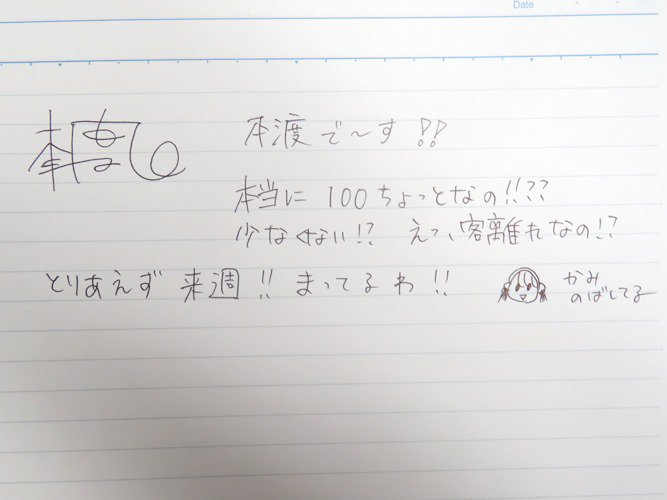 Date
本渡で〜す!!
本当に100ちょっとなの!!??
少なくない!? えっ、客離れなの!?
とりあえず 来週!! まってるわ!!
かみ
のばしてる